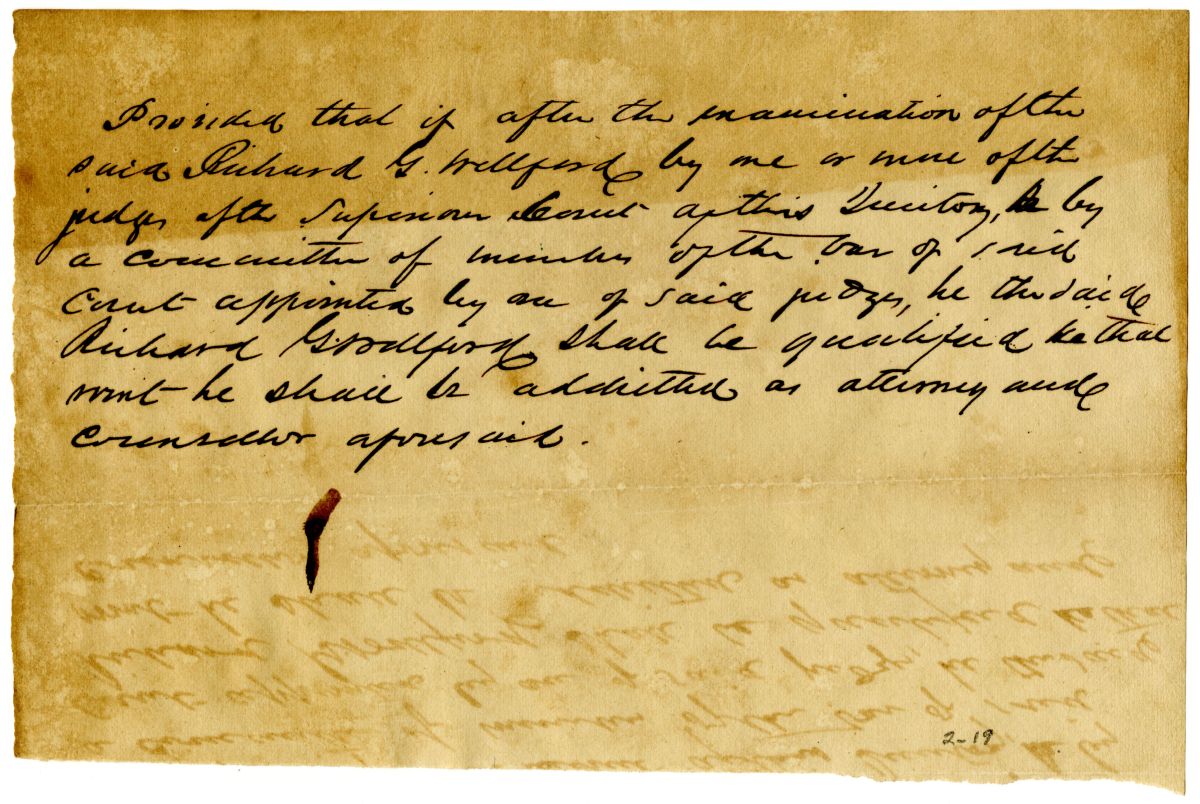 Provided that if after the examination of the
said Richard G. Wellford by one or more of the
judges of the Superior Court of this Territory, by
a committee of members of the bar of said
Court appointed by one of said judges, he the said
Richard G Wellford shall be qualified that
he shall be admitted as attorney and
Counsellor aforesaid.
2-19